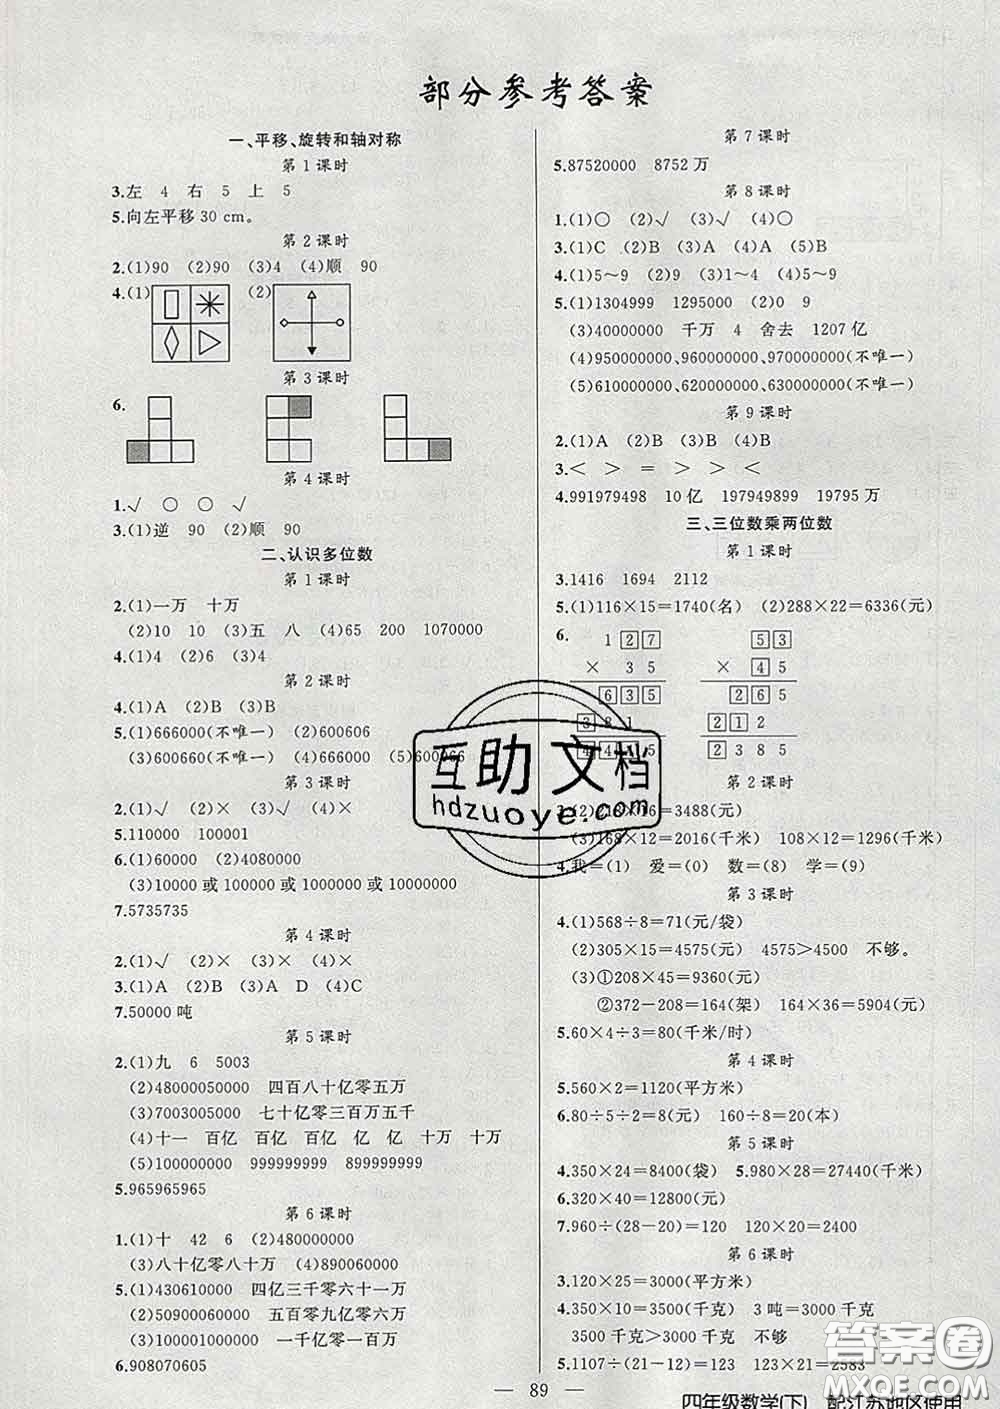 部分参考答案
一、平移、旋转和轴对称
第1课时
3.左 4 右 5 上 5
5.向左平移30 cm。
第2课时
2.(1)90 (2)90 (3)4 (4)顺 90
4.(1) (2)
第3课时
6.
第4课时
1.√ ○ ○ √
3.(1)逆 90 (2)顺 90
二、认识多位数
第1课时
2.(1)一万 十万
(2)10 10 (3)五 八 (4)65 200 1070000
4.(1)4 (2)6 (3)4
第2课时
4.(1)A (2)B (3)B
5.(1)666000(不唯一) (2)600606
(3)600660(不唯一) (4)666000 (5)600066
第3课时
2.(1)√ (2)× (3)√ (4)×
5.110000 100001
6.(1)60000 (2)4080000
(3)10000或100000或1000000或10000000
7.5735735
第4课时
2.(1)√ (2)× (3)× (4)×
3.(1)A (2)B (3)A D (4)C
7.50000吨
第5课时
2.(1)九 6 5003
(2)48000050000 四百八十亿零五万
(3)7003005000 七十亿零三百万五千
(4)十一 百亿 百亿 百亿 亿 亿 十万 十万
(5)1000000000 999999999 99999999
5.965965965
第6课时
1.(1)十 42 6 (2)480000000
(3)八十亿零八十万 (4)890060000
5.(1)430610000 四亿三千零六十一万
(2)50900060000 五百零九亿零六万
(3)100001000000 一千亿零一百万
6.908070605
第7课时
5.87520000 8752万
第8课时
1.(1)○ (2)√ (3)√ (4)○
3.(1)C (2)B (3)A (4)A (5)B
4.(1)5～9 (2)9 (3)1～4 (4)5～9
5.(1)1304999 1295000 (2)0 9
(3)40000000 千万 4 舍去 1207亿
(4)950000000,960000000,970000000(不唯一)
(5)610000000,620000000,630000000(不唯一)
第9课时
2.(1)A (2)B (3)B (4)B
3.< > = > > <
4.991979498 10亿 197949899 19795万
三、三位数乘两位数
第1课时
3.1416 1694 2112
5.(1)116×15=1740(名) (2)288×22=6336(元)
6. 1 2 7 5 3
× 3 5 × 4 5
6 3 5 2 6 5
3 8 1 2 1 2
4 4 4 5 2 3 8 5
第2课时
3.(2)218×16=3488(元)
(3)168×12=2016(千米) 108×12=1296(千米)
4.我=(1) 爱=(0) 数=(8) 学=(9)
第3课时
4.(1)568÷8=71(元/袋)
(2)305×15=4575(元) 4575>4500 不够。
(3)①208×45=9360(元)
②372-208=164(架) 164×36=5904(元)
5.60×4÷3=80(千米/时)
第4课时
5.560×2=1120(平方米)
6.80÷5÷2=8(元) 160÷8=20(本)
第5课时
4.350×24=8400(袋) 5.980×28=27440(千米)
6.320×40=12800(元)
7.960÷(28-20)=120 120×20=2400
第6课时
3.120×25=3000(平方米)
4.350×10=3500(千克) 3吨=3000千克
3500千克>3000千克 不够
5.1107÷(21-12)=123 123×21=2583
89
四年级数学(下) 配江苏地区使用
互助文档
hdzuoye.com
答案圈
MXQE.COM